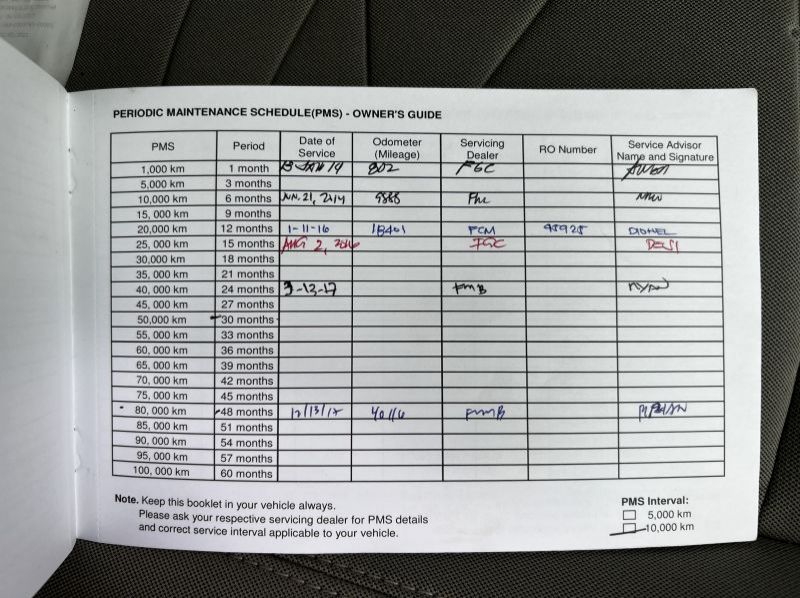 PERIODIC MAINTENANCE SCHEDULE(PMS) - OWNER'S GUIDE
PMS Period Date of Service Odometer (Mileage) Servicing Dealer RO Number Service Advisor Name and Signature
1,000 km 1 month 802 FGC
5,000 km 3 months
10,000 km 6 months JUN. 21, 2014
15, 000 km 9 months
20,000 km 12 months 1-11-16 18401 FCM 95925 DIONEL
25, 000 km 15 months AUG 2, 2016 FGC
30,000 km 18 months
35, 000 km 21 months
40, 000 km 24 months 3-13-17 FMB RYAN
45, 000 km 27 months
50,000 km 30 months
55, 000 km 33 months
60, 000 km 36 months
65, 000 km 39 months
70, 000 km 42 months
75, 000 km 45 months
80, 000 km 48 months 12/13/17 40116 FMMB
85, 000 km 51 months
90, 000 km 54 months
95, 000 km 57 months
100, 000 km 60 months
Note. Keep this booklet in your vehicle always.
Please ask your respective servicing dealer for PMS details
and correct service interval applicable to your vehicle.
PMS Interval:
5,000 km
10,000 km